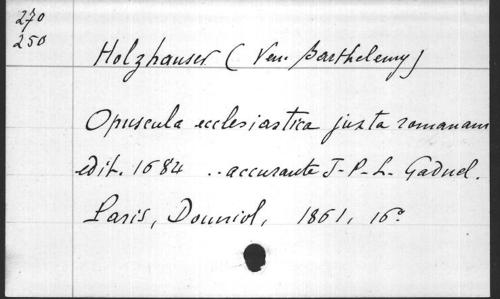 270
250
Holzhauser (Ven. Barthelemy)
Opuscula ecclesiastica juxta romanam
edit. 1684 .. accurante J-P-L- Gaduel.
Paris, Douniol, 1861, 16°